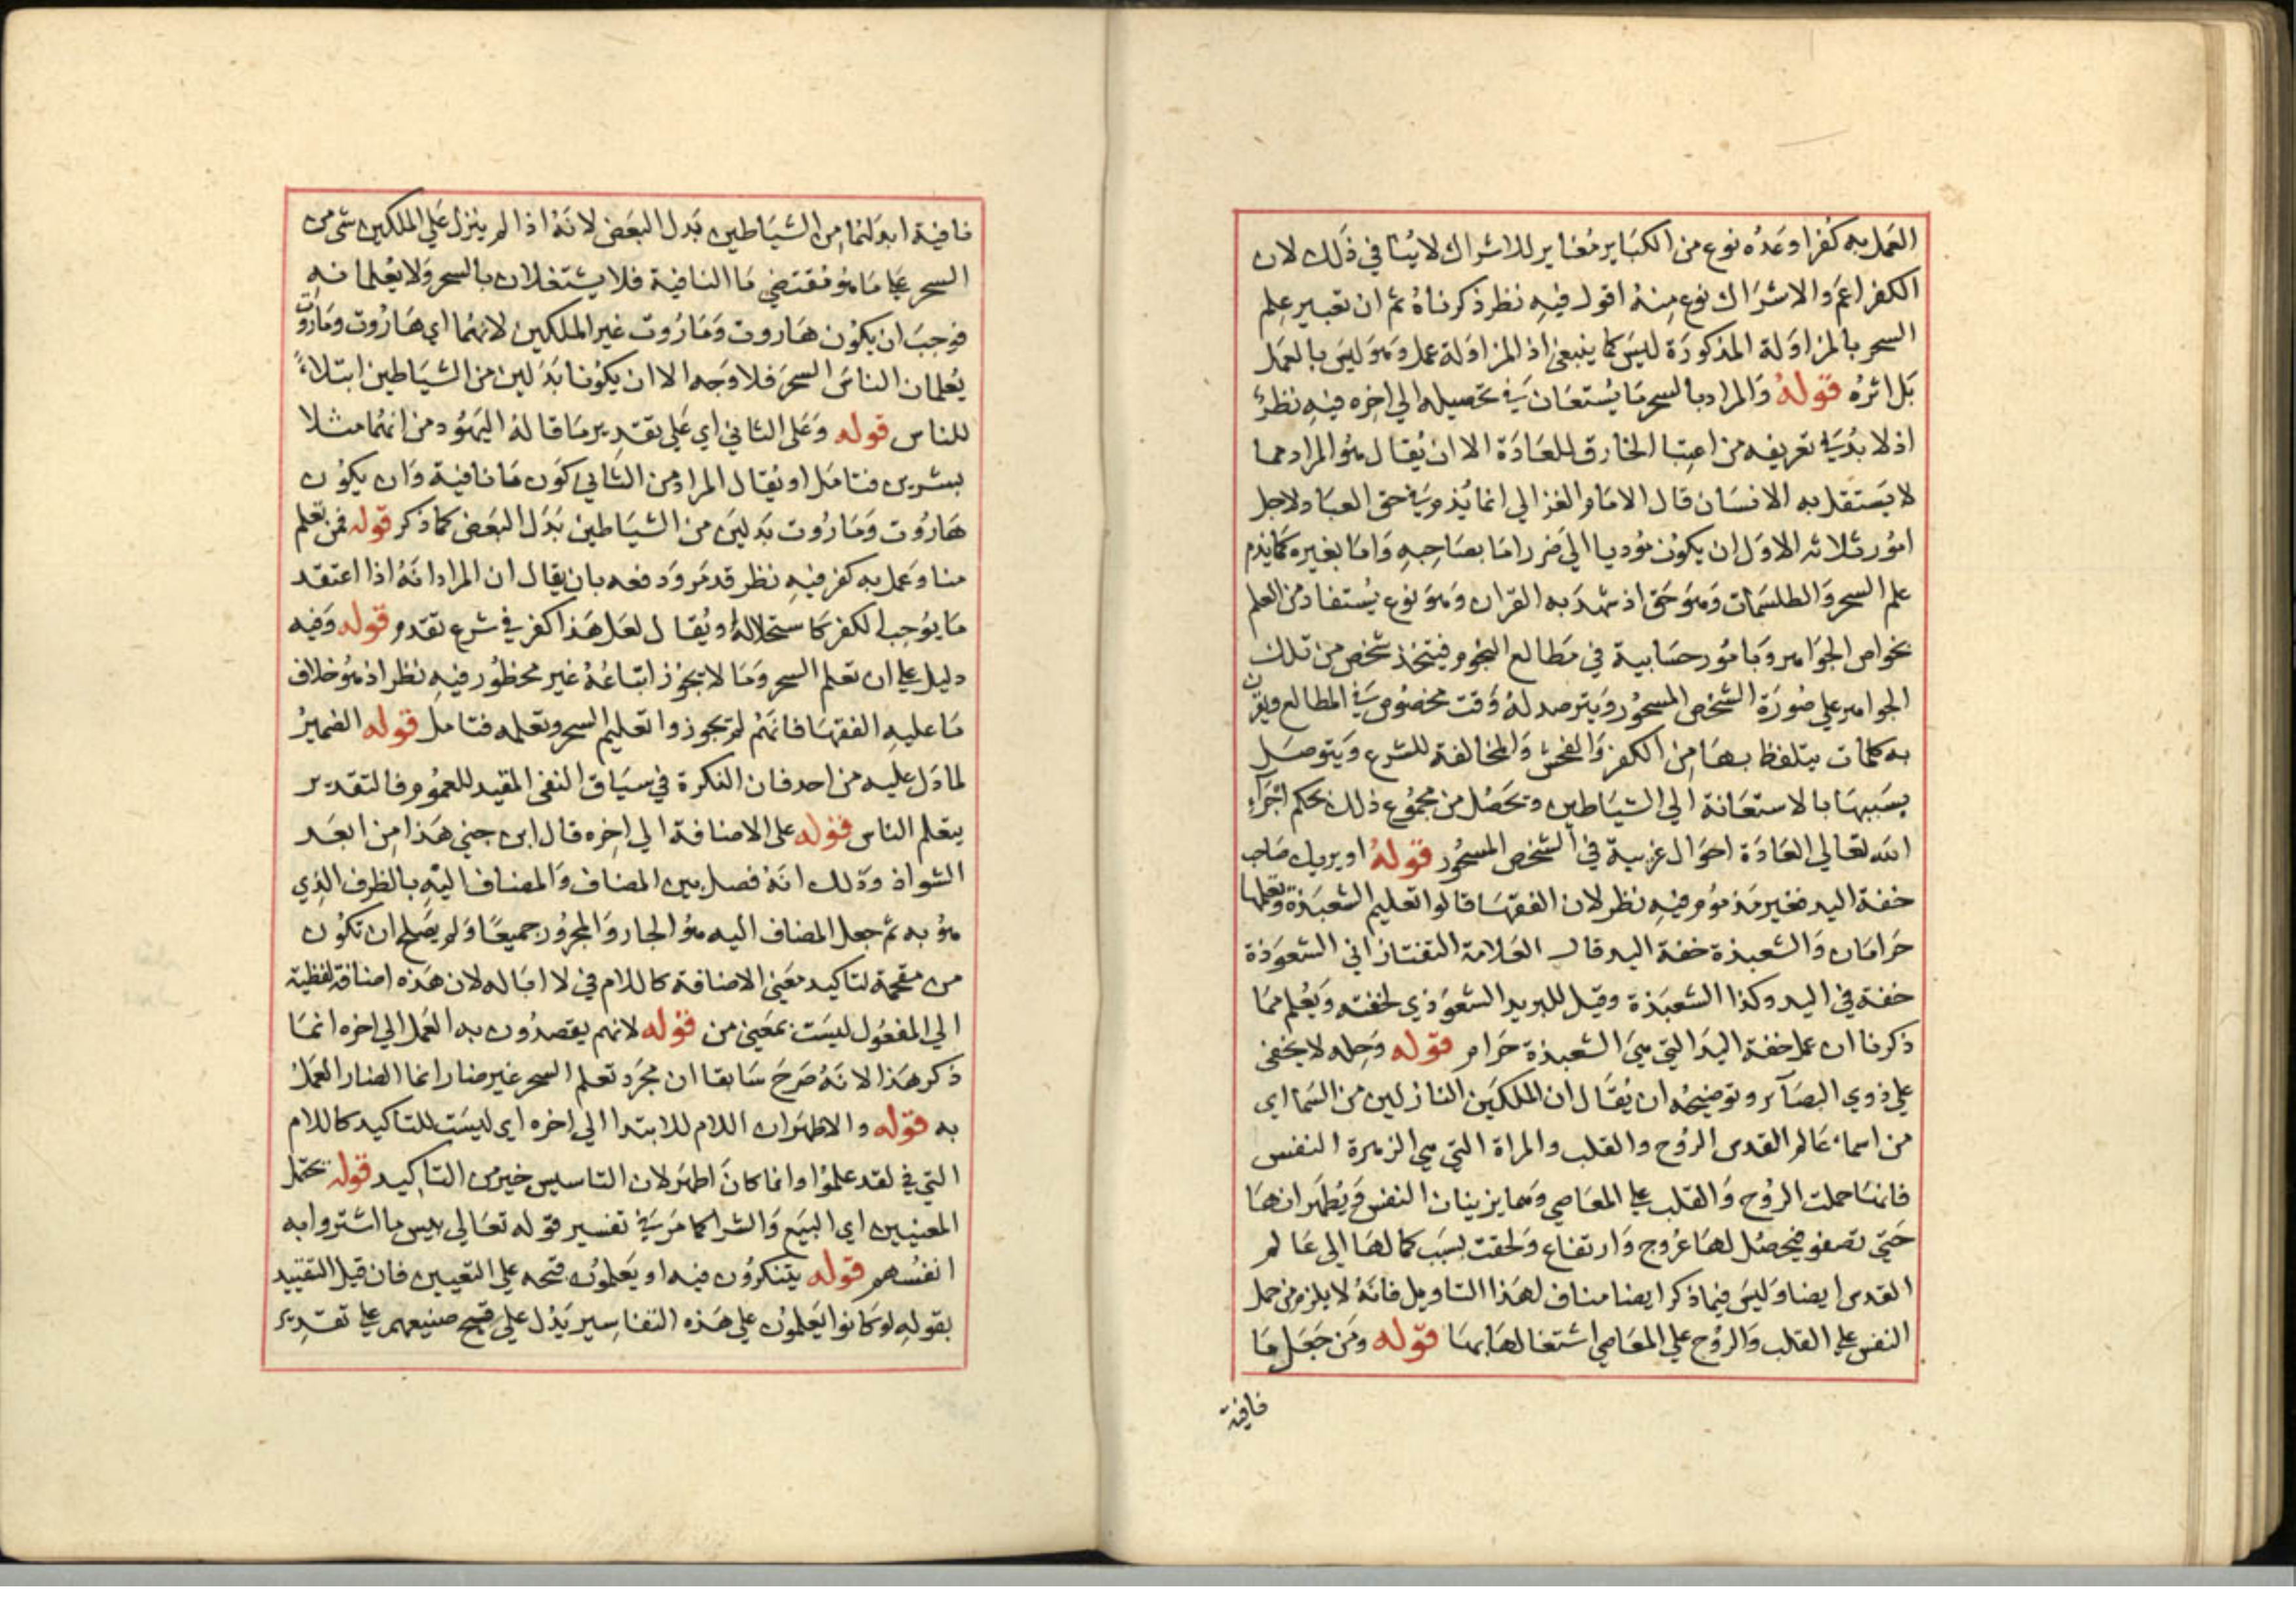 العمل به كفرا وعده نوع من الكباير مغاير للاشراك لا ينافي ذلك لان
الكفر اعم والاشراك نوع منه اقول فيه نظر ذكرناه ثم ان تعبير علم
السحر بالمزاولة المذكورة ليس كما ينبغي اذ المزاولة عمل وهو ليس بالعمل
بل اثره قوله والمراد بالسحر ما يستعان في تحصيله الي اخره فيه نظر
اذ لا بد في تعريفه من اعتبا الخارق للعادة الا ان يقال هو المراد مما
لا يستقل به الانسان قال الامام الغزالي انما يذم في حق العباد لاجل
امور ثلاثه الاول ان يكون موديا الي ضرر اما بصاحبه واما بغيره كما يذم
علم السحر والطلسمات وهو حق اذ شهد به القران وهو نوع يستفاد من العلم
بخواص الجواهر وبامور حسابية في مطالع النجوم فيتخذ شخص من تلك
الجواهر علي صورة الشخص المسحور ويترصد له وقت مخصوص في المطالع ويقرن
به كلمات يتلفظ بها من الكفر والفحش والمخالفة للشرع ويتوصل
بسببها بالاستعانة الي الشياطين وتحصل من مجموع ذلك بحكم اجراء
الله تعالي العادة احوال غريبة في الشخص المسحور قوله او يريك صاحب
خفة اليد فغير مذموم فيه نظر لان الفقها قالوا تعليم الشعبذة وتعلمها
حرامان والشعبذة خفة اليد قال العلامة التفتازاني الشعوذة
خفة في اليد وكذا الشعبذة وقيل للبريد الشعوذي لخفته ويعلم مما
ذكرنا ان عمل خفة اليد التي هي الشعبذة حرام قوله وحله لا يخفي
علي ذوي البصائر وتوضيحه ان يقال ان الملكين النازلين من السما اي
من اسماء عالم القدس الروح والقلب والمراة التي هي الزهرة النفس
فانها حملت الروح والقلب علي المعاصي وهما يزينان النفس ويطهرانها
حتي تصفو فيحصل لها عروج وارتفاع ولحقت بسبب كمالها الي عالم
القدس ايضا وليس فيما ذكر ايضا مناف لهذا التاويل فانه لا يلزم من حمل
النفس علي القلب والروح علي المعاصي اشتغالها بها قوله ومن جعل ما
نافية
نافية ابدلنما من الشياطين بدل البعض لانه اذا لم ينزل علي الملكين شي من
السحر علي ما هو مقتضي ما النافية فلا يشتغلان بالسحر ولا يعلمانه
فوجب ان يكون هاروت وماروت غير الملكين لانهما اي هاروت وماروت
يعلمان الناس السحر فلا وجه الا ان يكونا بدلين من الشياطين ابتلاء
للناس قوله وعلي الثاني اي علي تقدير ما قاله اليهود من انهما مثلا
بشرين فتامل او يقال المراد من الثاني كون ما نافية وان يكون
هاروت وماروت بدلين من الشياطين بدل البعض كما ذكر قوله فمن تعلم
منا وعمل به كفر فيه نظر قد مر ودفعه بان يقال ان المراد انه اذا اعتقد
ما يوجب الكفر كاستحلاله او يقال لعل هذا كفر في شرع تقدم قوله وفيه
دليل علي ان تعلم السحر وما لا يجوز اتباعه غير محظور فيه نظر اذ هو خلاف
ما عليه الفقها فانهم لم يجوزوا تعليم السحر وتعلمه فتامل قوله الضمير
لما دل عليه من احد فان النكرة في سياق النفي المقيد للعموم فالتقدير
يتعلم الناس قوله علي الاضافة الي اخره قال ابن جني هذا من ابعد
الشواذ وذلك انه فصل بين المضاف والمضاف اليه بالظرف الذي
هو به ثم جعل المضاف اليه هو الجار والمجرور جميعا ولم يصلح ان تكون
من مقحمة لتاكيد معني الاضافة كاللام في لا ابا له لان هذه اضافة لفظية
الي المفعول ليست بمعني من قوله لانهم يقصدون به العمل الي اخره انما
ذكر هذا لانه صرح سابقا ان مجرد تعلم السحر غير ضار انما الضار العمل
به قوله والاظهر ان اللام للابتدا الي اخره اي ليست للتاكيد كاللام
التي في لقد علموا وانما كان اظهر لان التاسيس خير من التاكيد قوله يحتمل
المعنيين اي البيع والشرا كما مر في تفسير قوله تعالي بيس ما اشتروا به
انفسهم قوله يتفكرون فيه او يعلمون قبحه علي التعيين فان قيل التقييد
بقوله لو كانوا يعلمون علي هذه التفاسير يدل علي قبح صنيعهم علي تقدير